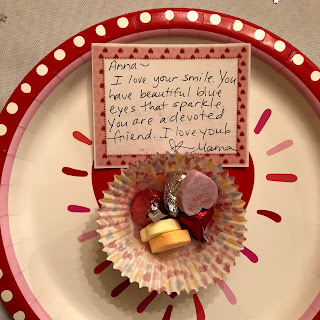 Anna~
I love your smile. You
have beautiful blue
eyes that sparkle.
You are a devoted
friend. I love you!
~Mama